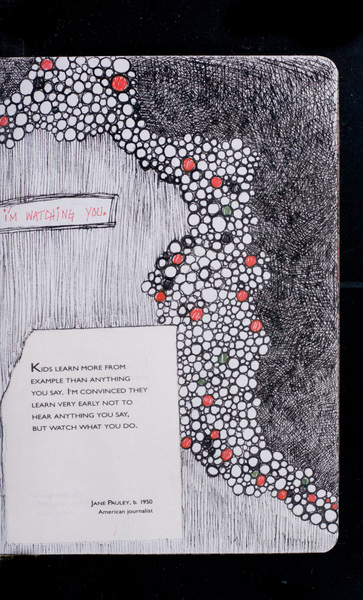 i'm WATCHING YOU.
KIDS LEARN MORE FROM
EXAMPLE THAN ANYTHING
YOU SAY. I'M CONVINCED THEY
LEARN VERY EARLY NOT TO
HEAR ANYTHING YOU SAY,
BUT WATCH WHAT YOU DO.
JANE PAULEY, b. 1950
American journalist